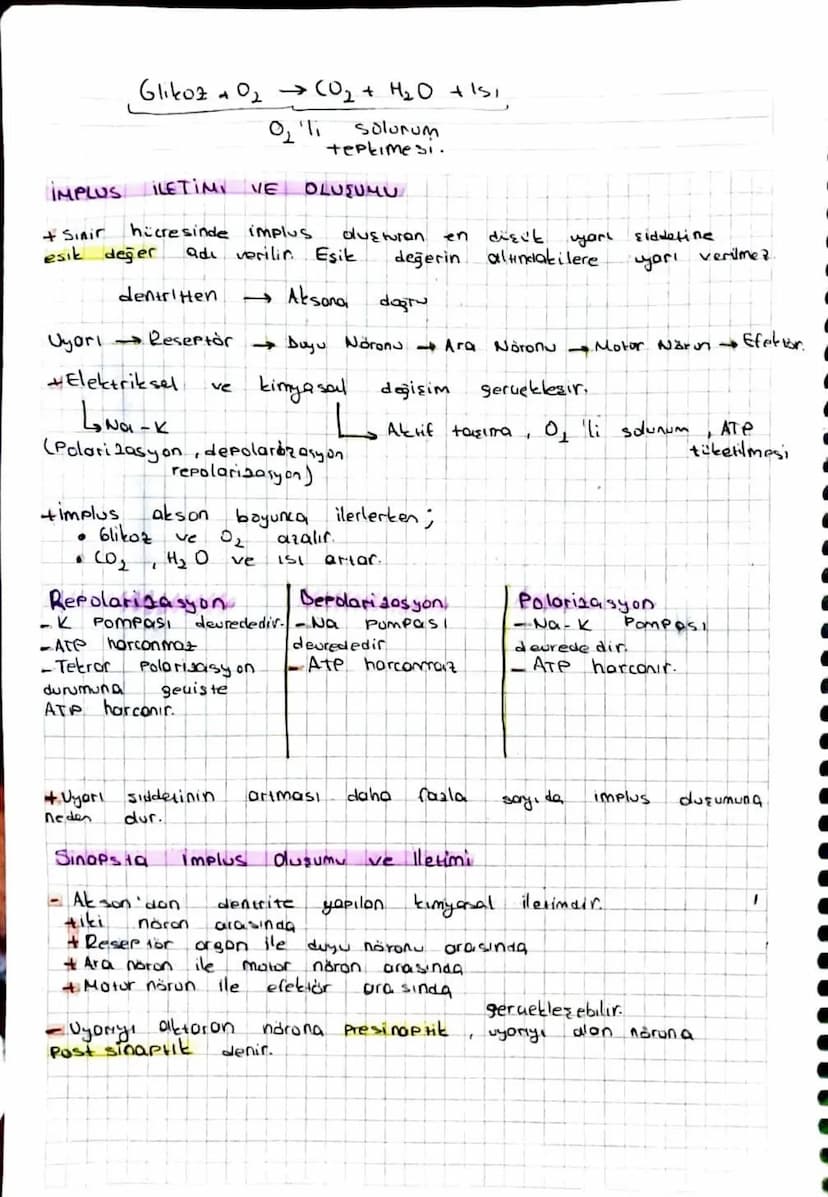 Glikoz + O₂ → CO₂ + H₂O + Isı
O₂'li solunum
tepkimesi.
İMPLUS İLETİMİ VE OLUŞUMU
+ Sinir hücresinde implus oluşturan en düşük uyarı şiddetine
eşik değer adı verilir. Eşik değerin altındakilere uyarı verilmez
dentritten → Aksona doğru
Uyarı → Reseptör → Duyu Nöronu → Ara Nöronu → Motor Nöron → Efektör.
+ Elektriksel ve kimyasal değişim gerçekleşir.
↳ Na-K
↳ Aktif taşıma, O₂'li solunum, ATP
tüketilmesi
(Polarizasyon, depolarizasyon
repolarizasyon)
+ implus akson boyunca ilerlerken;
• Glikoz ve O₂ azalır.
• CO₂, H₂O ve ısı artar.
Repolarizasyon
- K Pompası devrededir.
- ATP harcanmaz
- Tekrar Polarizasyon
durumuna geçişte
ATP harcanır.
Depolarizasyon
- Na Pompası
devrededir
- ATP harcanmaz
Polorizasyon
- Na-K Pompası
devrededir.
- ATP harcanır.
+ Uyarı şiddetinin artması daha fazla sayıda implus oluşumuna
neden olur.
Sinapsta implus Oluşumu ve İletimi
- Akson'dan dentrite yapılan kimyasal iletimdir.
+ iki nöron arasında
+ Reseptör organ ile duyu nöronu arasında
+ Ara nöron ile motor nöron arasında
+ Motor nörun ile efektör arasında
gerçekleşebilir.
- Uyarıyı aktaran nörona presinaptik, uyarıyı alan nörona
Post sinaptik denir.